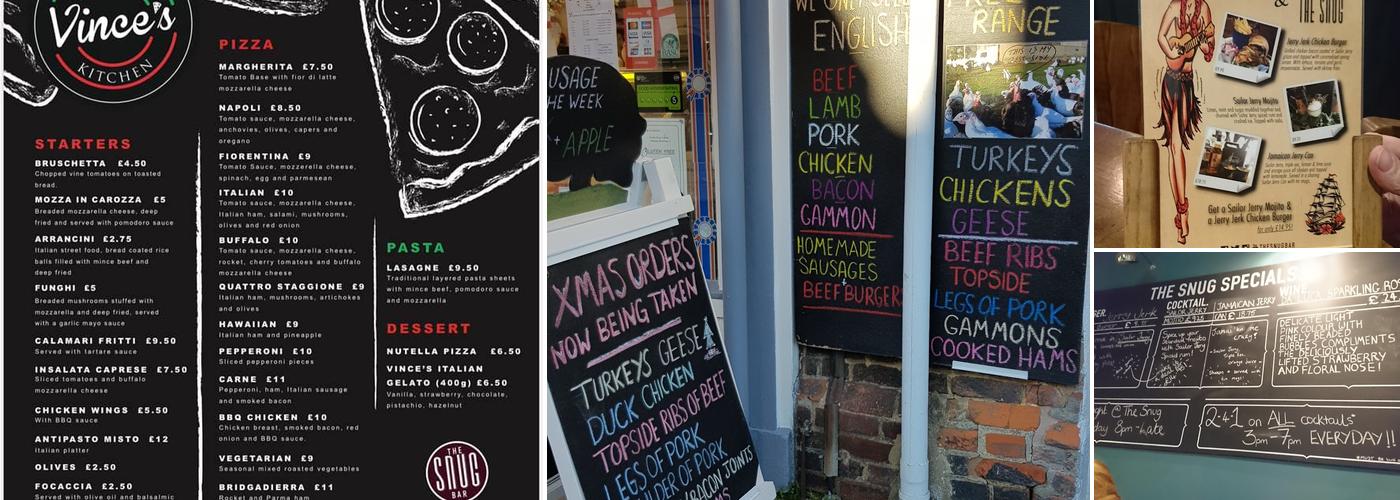 Vince's
KITCHEN
STARTERS
BRUSCHETTA £4.50
Chopped vine tomatoes on toasted
bread.
MOZZA IN CAROZZA £5
Breaded mozzarella cheese, deep
fried and served with pomodoro sauce
ARRANCINI £2.75
Italian street food, bread coated rice
balls filled with mince beef and
deep fried
FUNGHI £5
Breaded mushrooms stuffed with
mozzarella and deep fried, served
with a garlic mayo sauce
CALAMARI FRITTI £9.50
Served with tartare sauce
INSALATA CAPRESE £7.50
Sliced tomatoes and buffalo
mozzarella cheese
CHICKEN WINGS £5.50
With BBQ sauce
ANTIPASTO MISTO £12
Italian platter
OLIVES £2.50
FOCACCIA £2.50
Served with olive oil and balsalmic
PIZZA
MARGHERITA £7.50
Tomato Base with fior di latte
mozzarella cheese
NAPOLI £8.50
Tomato sauce, mozzarella cheese,
anchovies, olives, capers and
oregano
FIORENTINA £9
Tomato Sauce, mozzerella cheese,
spinach, egg and parmesean
ITALIAN £10
Tomato sauce, mozzarella cheese,
Italian ham, salami, mushrooms,
olives and red onion
BUFFALO £10
Tomato sauce, mozzarella cheese,
rocket, cherry tomatoes and buffalo
mozzarella cheese
QUATTRO STAGGIONE £9
Italian ham, mushrooms, artichokes
and olives
HAWAIIAN £9
Italian ham and pineapple
PEPPERONI £10
Sliced pepperoni pieces
CARNE £11
Pepperoni, ham, Italian sausage
and smoked bacon
BBQ CHICKEN £10
Chicken breast, smoked bacon, red
onion and BBQ sauce.
VEGETARIAN £9
Seasonal mixed roasted vegetables
BRIDGADIERRA £11
Rocket and Parma ham
PASTA
LASAGNE £9.50
Traditional layered pasta sheets
with mince beef, pomodoro sauce
and mozzarella
DESSERT
NUTELLA PIZZA £6.50
VINCE'S ITALIAN
GELATO (400g) £6.50
Vanilla, strawberry, chocolate,
pistachio, hazelnut
THE
SNUG
BAR
USAGE
HE WEEK
+ APPLE
XMAS ORDERS
NOW BEING TAKEN
TURKEYS GEESE
DUCK CHICKEN
TOPSIDE RIBS OF BEEF
LEGS OF PORK
LDER OF PORK
BACON JOINTS
WE ONLY SELL
ENGLISH
BEEF
LAMB
PORK
CHICKEN
BACON
GAMMON
HOMEMADE
SAUSAGES
+
BEEFBURGERS
FREE
RANGE
THIS IS MY
TURKEYS
CHICKENS
GEESE
BEEF RIBS
TOPSIDE
LEGS OF PORK
GAMMONS
COOKED HAMS
& THE SNUG
Jerry Jerk Chicken Burger
Sailor Jerry Mojito
Jamaican Jerry Can
Get a Sailor Jerry Mojito &
a Jerry Jerk Chicken Burger
for only £14.95!
THESNUGBAR
THE SNUG SPECIALS
COCKTAIL
SAILOR JERRY
JAMAICAN JERRY
CAN £18.75
WINE
SPARKLING ROS
DELICATE LIGHT
PINK COLOUR WITH
FINELY BEADED
BUBBLES COMPLIMENTS
THE DELICIOUSLY
LIFTED STRAWBERRY
AND FLORAL NOSE!
ght @ The Snug
day 8pm - Late
2-4-1 on ALL cocktails*
3pm - 7pm EVERYDAY!!